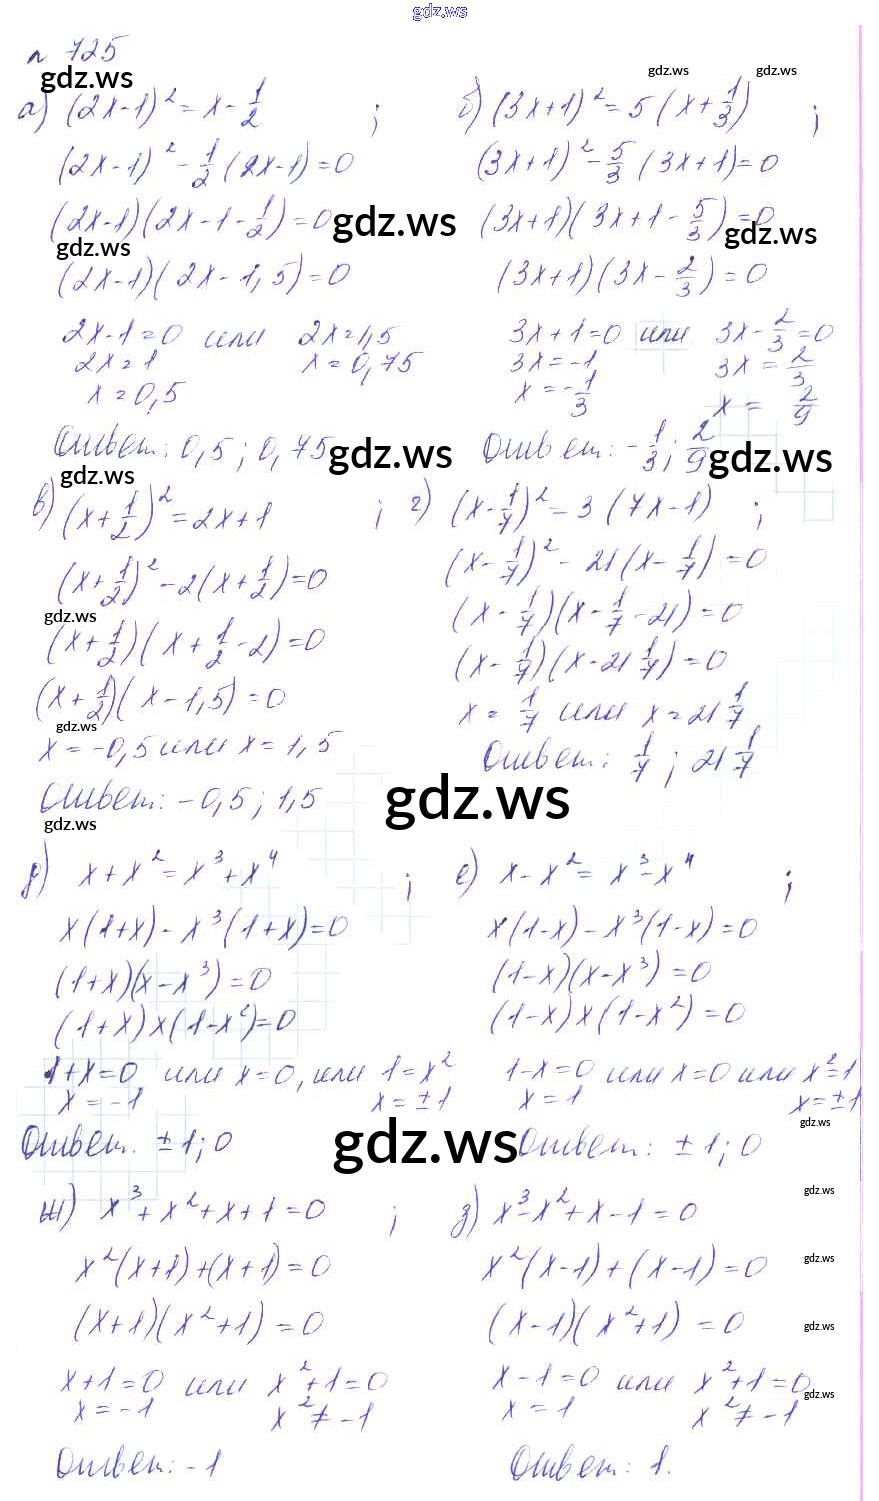 gdz.ws
n 725
gdz.ws
gdz.ws gdz.ws
а) (2x-1)² = x - 1/2 ; б) (3x+1)² = 5(x + 1/3) ;
(2x-1)² - 1/2(2x-1)=0 (3x+1)² - 5/3(3x+1)=0
(2x-1)(2x-1-1/2)=0 (3x+1)(3x+1-5/3)=0
gdz.ws gdz.ws
gdz.ws
(2x-1)(2x-1,5)=0 (3x+1)(3x-2/3)=0
2x-1=0 или 2x=1,5 3x+1=0 или 3x-2/3=0
2x=1 x=0,75 3x=-1 3x=2/3
x=0,5 x=-1/3 x=2/9
Ответ: 0,5; 0,75 Ответ: -1/3; 2/9
gdz.ws gdz.ws
gdz.ws
в) (x+1/2)² = 2x+1 ; г) (x-1/7)² = 3(7x-1) ;
(x+1/2)² - 2(x+1/2)=0 (x-1/7)² - 21(x-1/7)=0
gdz.ws
(x+1/2)(x+1/2-2)=0 (x-1/7)(x-1/7-21)=0
(x+1/2)(x-1,5)=0 (x-1/7)(x-21 1/7)=0
gdz.ws
x=-0,5 или x=1,5 x=1/7 или x=21 1/7
Ответ: -0,5; 1,5 Ответ: 1/7; 21 1/7
gdz.ws
gdz.ws
д) x+x²=x³+x⁴ ; е) x-x²=x³-x⁴ ;
x(1+x)-x³(1+x)=0 x(1-x)-x³(1-x)=0
(1+x)(x-x³)=0 (1-x)(x-x³)=0
(1+x)x(1-x²)=0 (1-x)x(1-x²)=0
1+x=0 или x=0, или 1=x² 1-x=0 или x=0 или x²=1
x=-1 x=±1 x=1 x=±1
gdz.ws
gdz.ws
Ответ. ±1; 0 Ответ: ±1; 0
gdz.ws
ж) x³+x²+x+1=0 ; з) x³-x²+x-1=0
x²(x+1)+(x+1)=0 x²(x-1)+(x-1)=0
gdz.ws
(x+1)(x²+1)=0 (x-1)(x²+1)=0
gdz.ws
x+1=0 или x²+1=0 x-1=0 или x²+1=0
gdz.ws
x=-1 x²≠-1 x=1 x²≠-1
Ответ: -1 Ответ: 1.